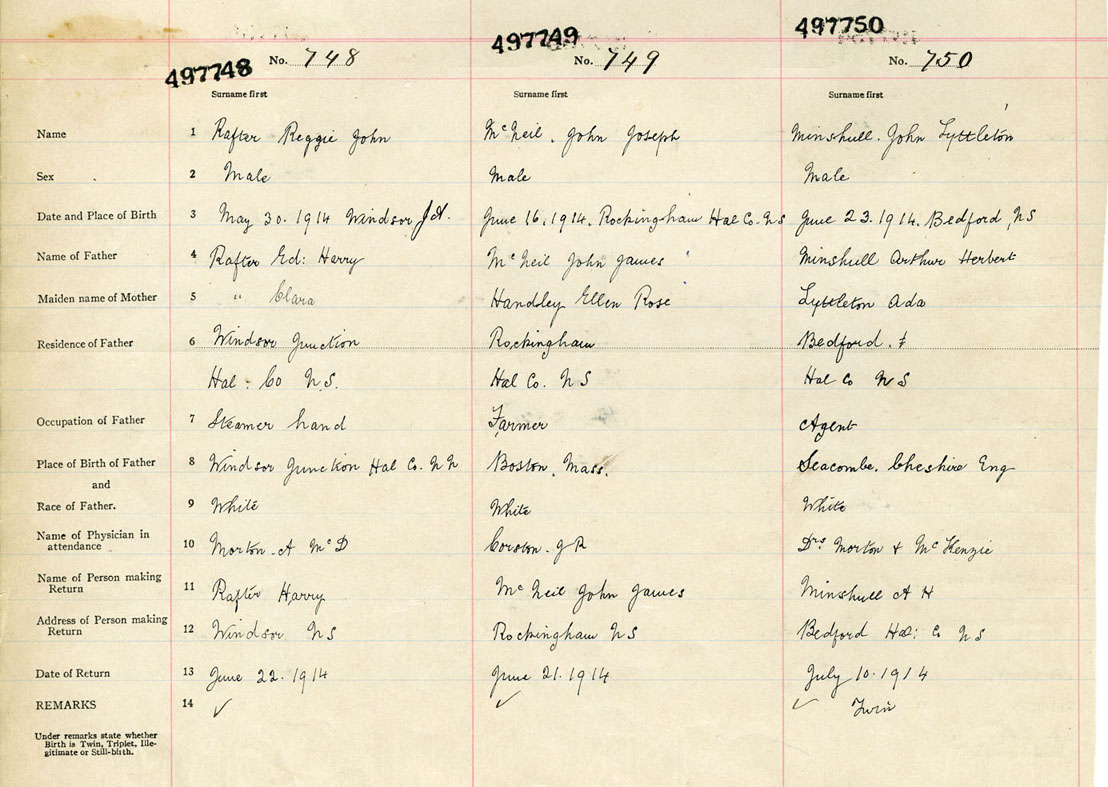 497748 497749 497750
No. 748 No. 749 No. 750
Surname first Surname first Surname first
Name 1 Rafter Reggie John McNeil, John Joseph Minshull. John Lyttleton
Sex 2 Male Male Male
Date and Place of Birth 3 May 30. 1914 Windsor Jct. June 16. 1914. Rockingham Hal Co. NS June 23. 1914. Bedford, NS
Name of Father 4 Rafter Ed: Harry McNeil John James Minshull Arthur Herbert
Maiden name of Mother 5 " Clara Handley Ellen Rose Lyttleton Ada
Residence of Father 6 Windsor Junction Rockingham Bedford.
Hal: Co N.S. Hal Co. NS Hal Co NS
Occupation of Father 7 Steamer hand Farmer Agent
Place of Birth of Father 8 Windsor Junction Hal Co. Boston, Mass. Seacombe, Cheshire Eng
and
Race of Father. 9 White White White
Name of Physician in
attendance 10 Morton A McD Corston. J R Drs Morton + McKenzie
Name of Person making
Return 11 Rafter Harry McNeil John James Minshull A H
Address of Person making
Return 12 Windsor NS Rockingham NS Bedford Hal: Co NS
Date of Return 13 June 22. 1914 June 21. 1914 July 10. 1914
REMARKS 14 ✓ ✓ ✓ Twin
Under remarks state whether
Birth is Twin, Triplet, Ille-
gitimate or Still-birth.